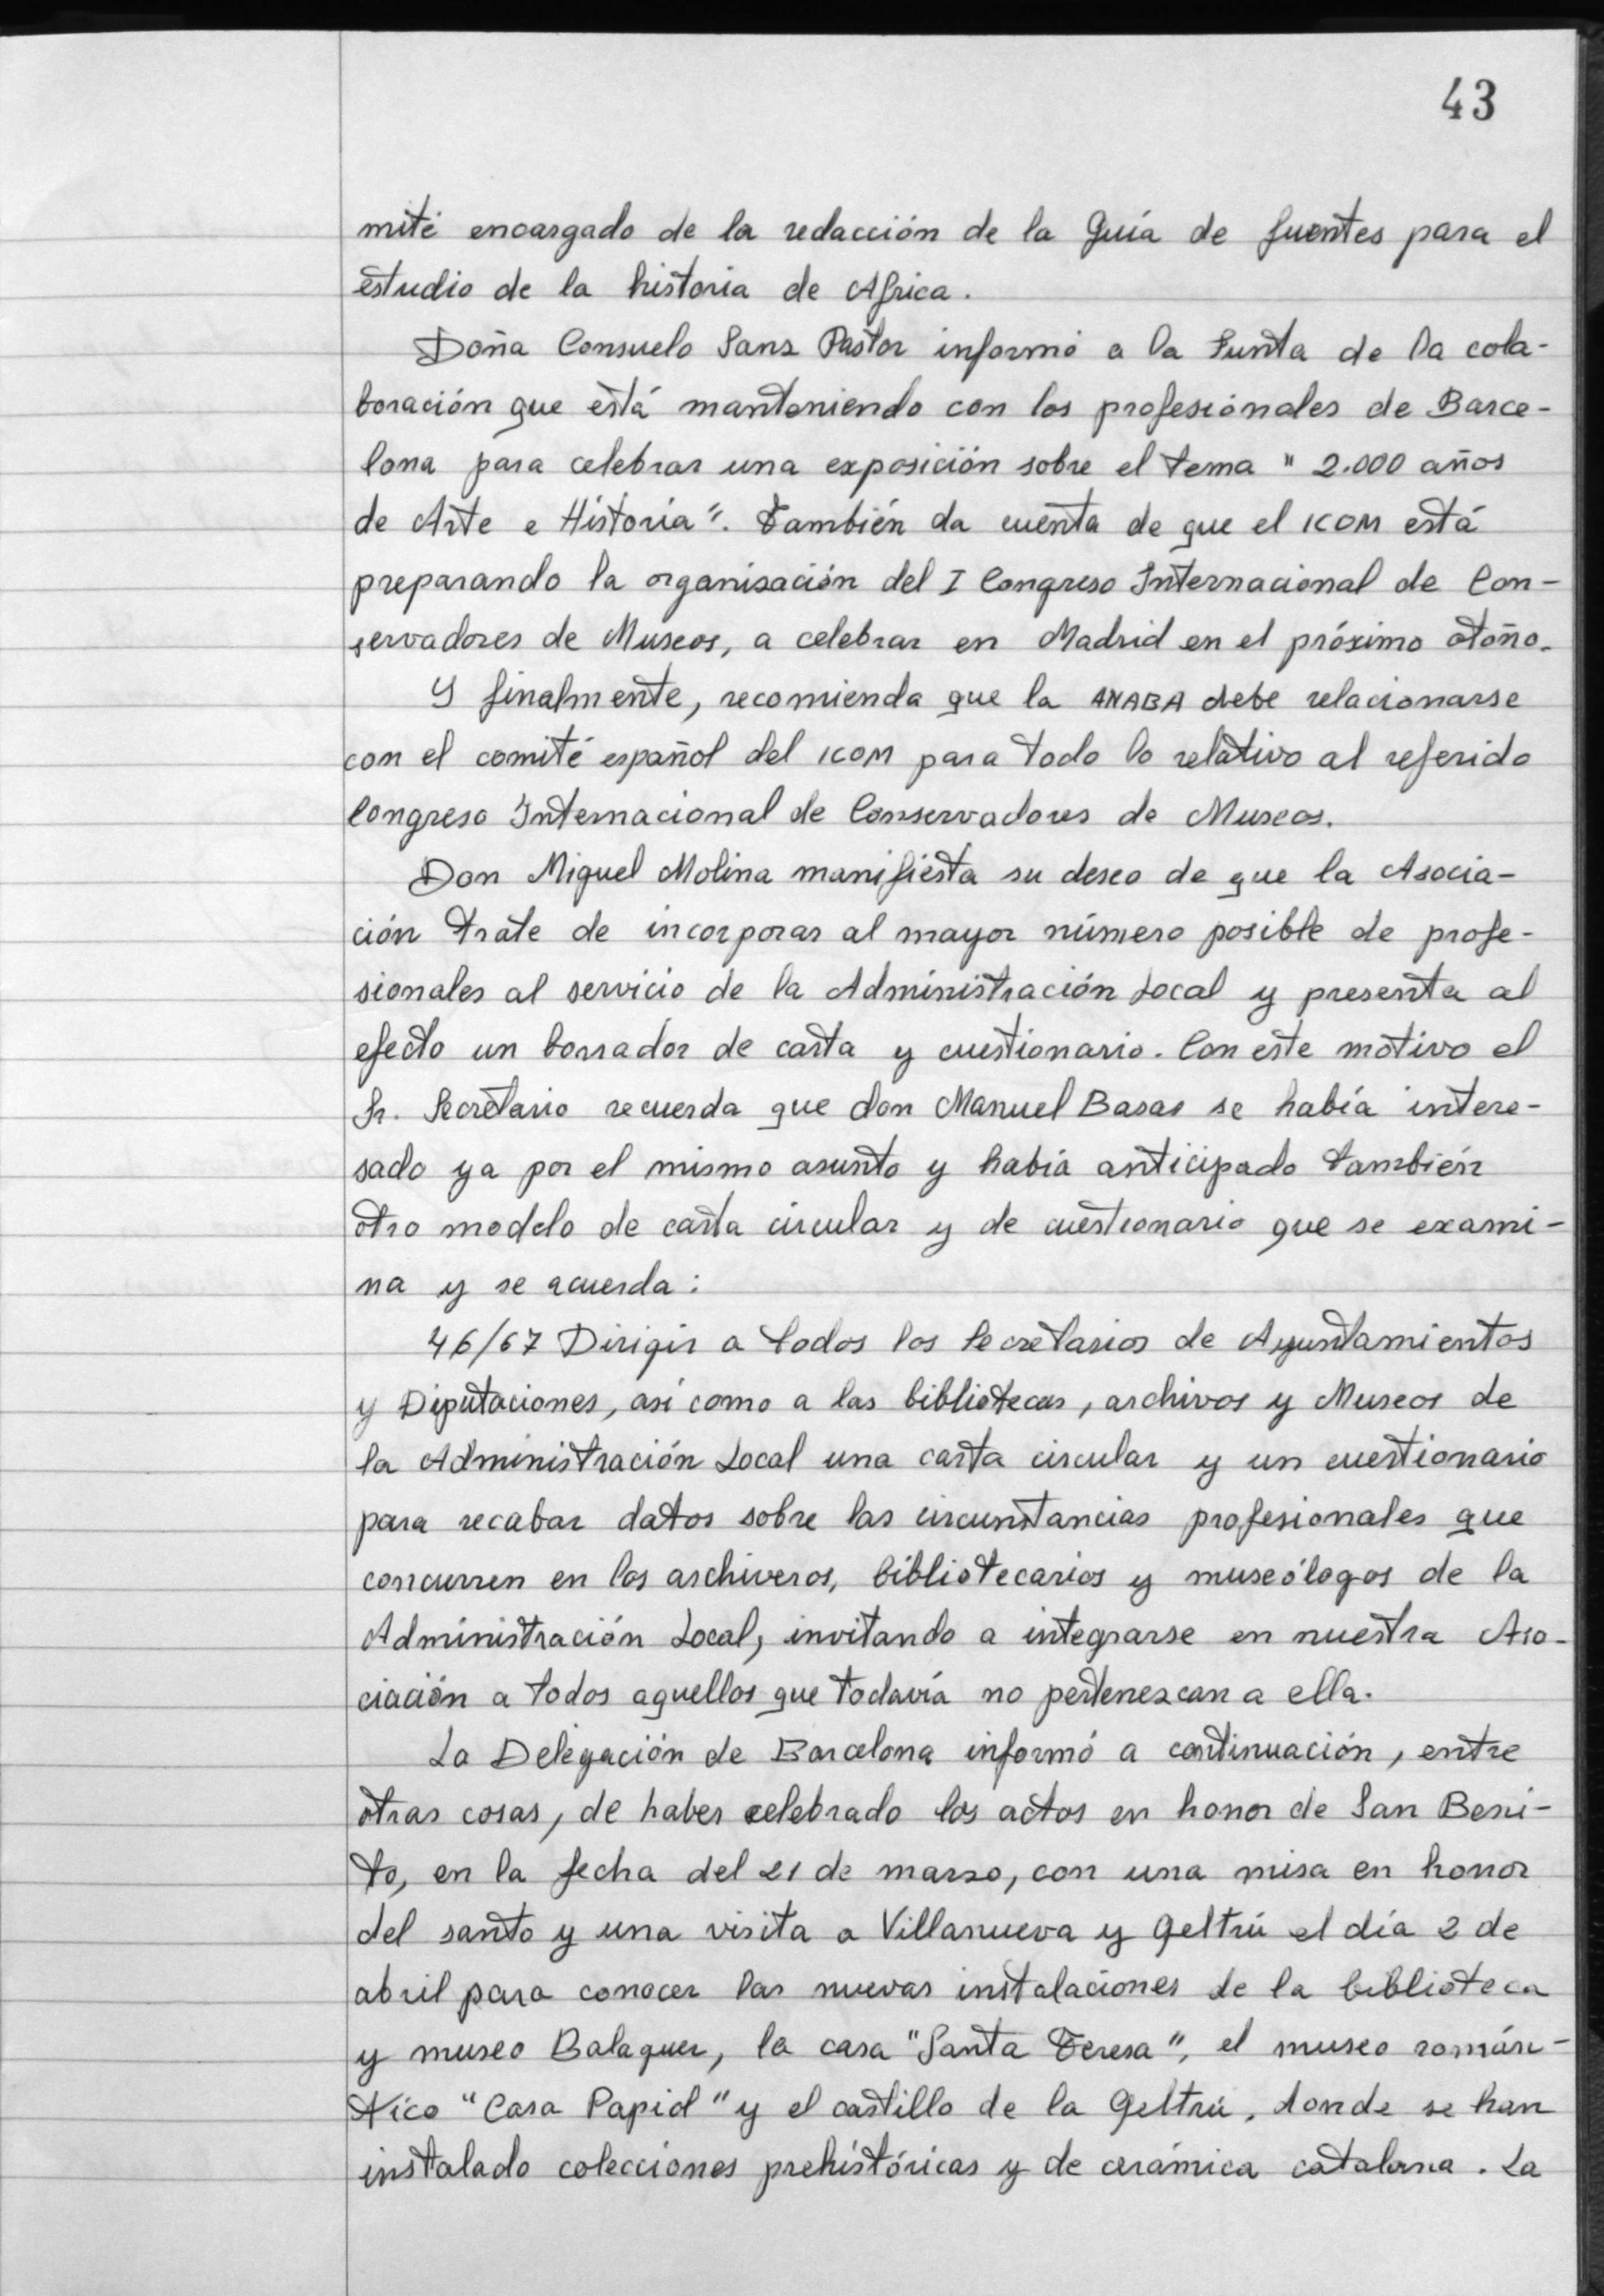 43
mité encargado de la redacción de la Guía de fuentes para el
estudio de la historia de Africa.
Doña Consuelo Sanz Pastor informó a la Junta de la cola-
boración que está manteniendo con los profesionales de Barce-
lona para celebrar una exposición sobre el tema "2.000 años
de Arte e Historia". También da cuenta de que el ICOM está
preparando la organización del I Congreso Internacional de Con-
servadores de Museos, a celebrar en Madrid en el próximo otoño.
Y finalmente, recomienda que la ANABA debe relacionarse
con el comité español del ICOM para todo lo relativo al referido
Congreso Internacional de Conservadores de Museos.
Don Miguel Molina manifiesta su deseo de que la Asocia-
ción trate de incorporar al mayor número posible de profe-
sionales al servicio de la Administración Local y presenta al
efecto un borrador de carta y cuestionario. Con este motivo el
Sr. Secretario recuerda que don Manuel Basas se había intere-
sado ya por el mismo asunto y había anticipado también
otro modelo de carta circular y de cuestionario que se exami-
na y se acuerda:
46/67 Dirigir a todos los Secretarios de Ayuntamientos
y Diputaciones, así como a las bibliotecas, archivos y Museos de
la Administración Local una carta circular y un cuestionario
para recabar datos sobre las circunstancias profesionales que
concurren en los archiveros, bibliotecarios y museólogos de la
Administración Local, invitando a integrarse en nuestra Aso-
ciación a todos aquellos que todavía no pertenezcan a ella.
La Delegación de Barcelona informó a continuación, entre
otras cosas, de haber celebrado los actos en honor de San Beni-
to, en la fecha del 21 de marzo, con una misa en honor
del santo y una visita a Villanueva y Geltrú el día 2 de
abril para conocer las nuevas instalaciones de la biblioteca
y museo Balaguer, la casa "Santa Teresa", el museo román-
tico "Casa Papiol" y el castillo de la Geltrú, donde se han
instalado colecciones prehistóricas y de cerámica catalana. La